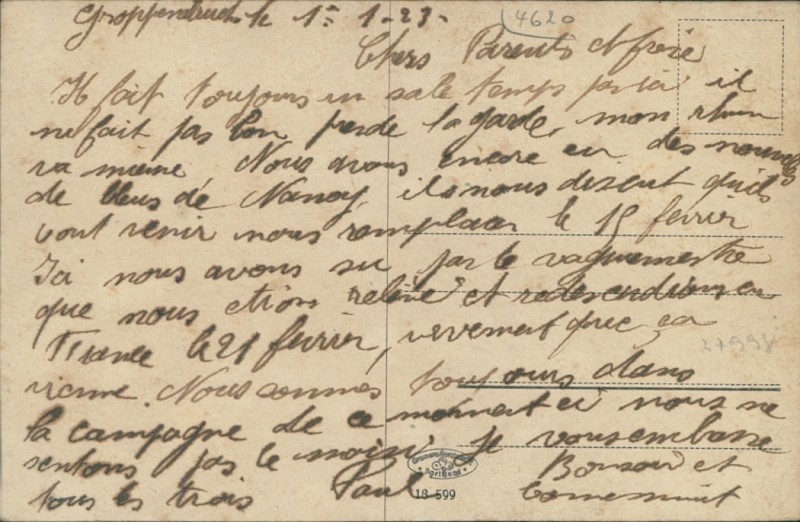 le 1er 1-23-
4620
Chers Parents et frère
Il fait toujours un sale temps par ici il
ne fait pas bon perde la garde, mon rhum
va mieux, Nous avons encore eu des nouvelles
de bleus de Nancy, ils nous disent qu'ils
vont venir nous remplacer le 15 février
Ici nous avons su par le vaguemestre
que nous etion relevé et redesendions en
France le 21 février, vivement que ça
vienne. Nous sommes toujours dans
la campagne de ce moment ci nous ne
sentons pas le moisi. Je vous embrasse
tous les trois Paul Bonsoir et
27998
18 599